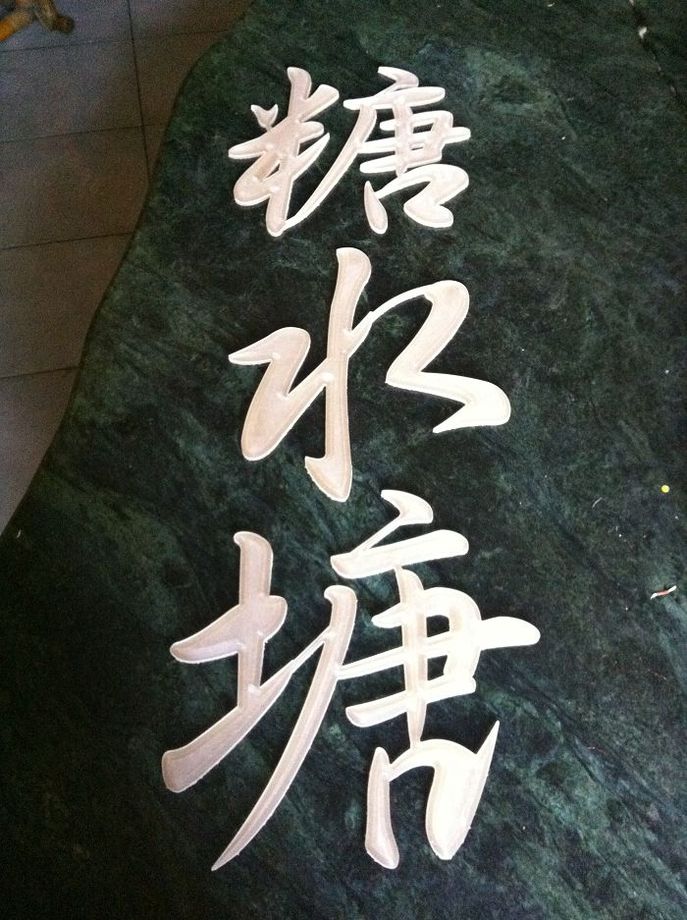 糖水塘